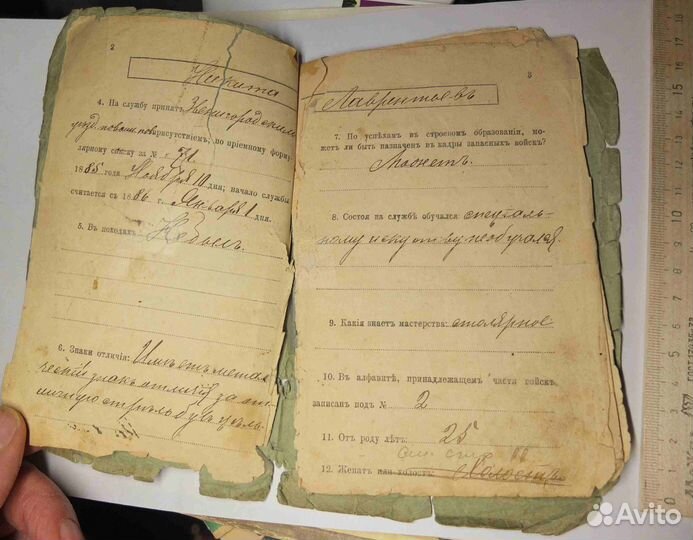 2
Никита
4. На службу принятъ Нижегородскимъ
уѣзд. по воин. пов. присутствіемъ; по пріемному форму-
лярному списку за № 71
1885 года Ноября 10 дня; начало службы
считается съ 1886 г. Января 1 дня.
5. Въ походахъ Не былъ.
6. Знаки отличія: Имѣетъ метал-
ческій знакъ отличія за от-
личную стрѣльбу въ цѣль.
3
Лаврентьевъ
7. По успѣхамъ въ строевомъ образованіи, мо-
жетъ ли быть назначенъ въ кадры запасныхъ войскъ?
Можетъ.
8. Состоя на службѣ обучался спеціаль-
ному искуству не обучался.
9. Какія знаетъ мастерства: столярное
10. Въ алфавитѣ, принадлежащемъ части войскъ
записанъ подъ № 2
11. Отъ роду лѣтъ: 25
См. стр. 11
12. Женатъ или холостъ: Холостъ
0 1 2 3 4 5 6 7 8 9 10 11 12 13 14 15 16 17 18
Avito